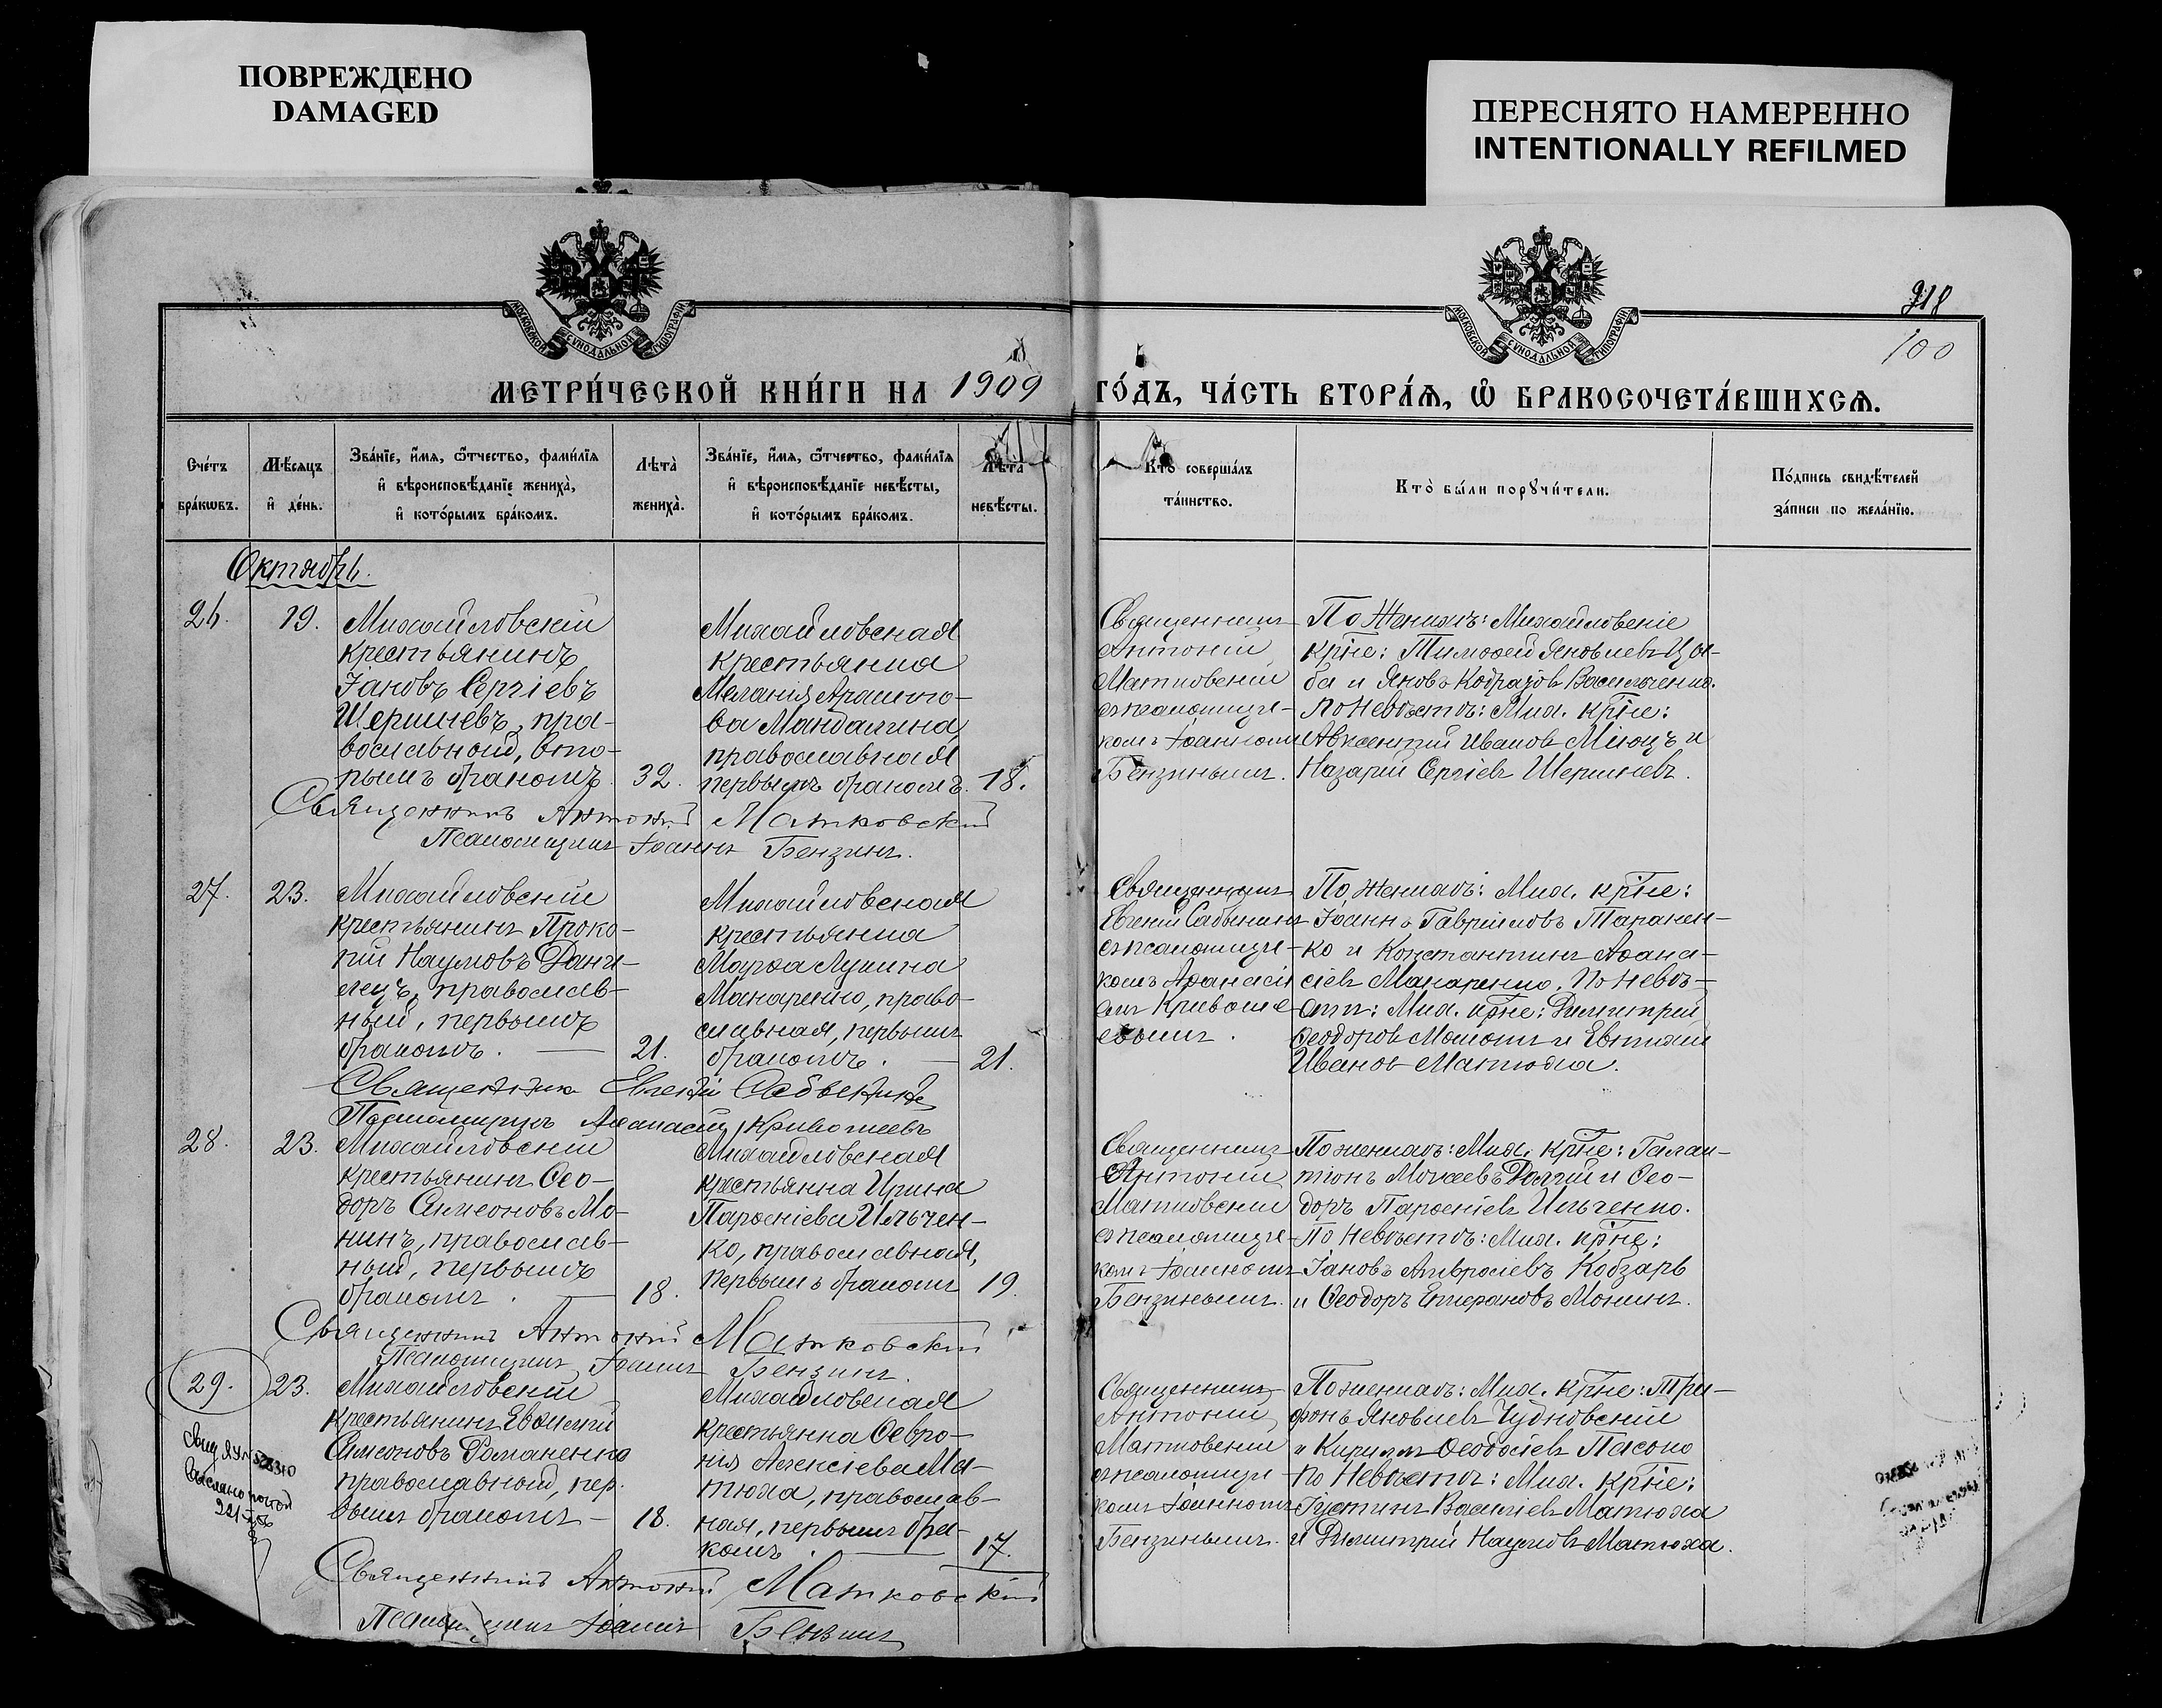 ПОВРЕЖДЕНО
DAMAGED
ПЕРЕСНЯТО НАМЕРЕННО
INTENTIONALLY REFILMED
МОСКОВСКОЙ СѴНОДАЛЬНОЙ ТИПОГРАФІИ
МОСКОВСКОЙ СѴНОДАЛЬНОЙ ТИПОГРАФІИ
318
100
МЕТРИ́ЧЕСКОЙ КНИ́ГИ НА 1909 ГО́ДЪ, ЧА́СТЬ ВТОРА́Ѧ, Ѽ БРАКОСОЧЕТА́ВШИХСѦ.
Сче́тъ
бра́кѡвъ.
Мѣ́сѧцъ
и҆ де́нь.
Зва́нїе, и҆́мѧ, ѻ҆́тчество, фами́лїѧ
и҆ вѣроисповѣ́данїе жениха̀,
и҆ кото́рымъ бра́комъ.
Лѣта̀
жениха̀.
Зва́нїе, и҆́мѧ, ѻ҆́тчество, фами́лїѧ
и҆ вѣроисповѣ́данїе невѣ́сты,
и҆ кото́рымъ бра́комъ.
Лѣта̀
невѣ́сты.
Кто̀ соверша́лъ
та́инство.
Кто̀ бы́ли порꙋчи́тели.
По́дпись свидѣ́телей
за́писи по жела́нїю.
Октябрь.
26.
19.
Михайловскій
крестьянинъ
Іаковъ Сергіевъ
Шершневъ, пра-
вославный, вто-
рымъ бракомъ.
32.
Михайловская
крестьянка
Меланія
ва
православная
первымъ бракомъ.
18.
Священникъ
Антоній
Матковскій
съ псаломщи-
комъ Іоанномъ
Бензинымъ.
По женихѣ: Михайловскіе
кр͠не: Тимофей Яковлевъ Цы-
ба и Яковъ
По невѣстѣ: Мих. кр͠не:
Авксентій Ивановъ и
Назарій Сергіевъ Шершневъ.
Священникъ Антоній Матковскій
Псаломщикъ Іоаннъ Бензинъ.
27.
23.
Михайловскій
крестьянинъ Проко-
пій Наумовъ Дани-
лецъ, православ-
ный, первымъ
бракомъ.
21.
Михайловская
крестьянка
Марѳа Лукина
Макаренко, право-
славная, первымъ
бракомъ.
21.
Священникъ
Евгеній
съ псаломщи-
комъ Аѳанасі
емъ Кривоше
евымъ.
По женихѣ: Мих. кр͠не:
Іоаннъ Гавріиловъ Таранен-
ко и Константинъ Аѳана-
сіевъ Макаренко. По невѣ-
стѣ: Мих. кр͠не: Димитрій
Ѳеодоровъ и Евтихій
Ивановъ Матюха.
Священникъ Евгеній
Псаломщикъ Аѳанасій Кривошеевъ
28.
23.
Михайловскій
крестьянинъ Ѳео-
доръ Симеоновъ Мо-
нинъ, православ-
ный, первымъ
бракомъ.
18.
Михайловская
крестьянка Ирина
Парѳеніева Ильчен-
ко, православная,
первымъ бракомъ
19.
Священникъ
Антоній
Матковскій
съ псаломщи-
комъ Іоанномъ
Бензинымъ.
По женихѣ: Мих. кр͠не: Галак-
тіонъ Моисеевъ Долгій и Ѳео-
доръ Парѳеніевъ Ильченко.
По невѣстѣ: Мих. кр͠не:
Іаковъ Амвросіевъ Кобзарь
и Ѳеодоръ Епифановъ Монинъ.
Священникъ Антоній Матковскій
Псаломщикъ Іоаннъ Бензинъ.
29.
23.
Михайловскій
крестьянинъ Евѳимій
Симеоновъ Романенко
православный, пер-
вымъ бракомъ
18.
Михайловская
крестьянка Февро-
нія Алексіева Ма-
тюха, православ-
ная, первымъ бра-
комъ.
17.
Священникъ
Антоній
Матковскій
съ псаломщи-
комъ Іоанномъ
Бензинымъ.
По женихѣ: Мих. кр͠не: Три-
фонъ Яковлевъ Чудновскій
и Кириллъ Ѳеодосіевъ Пасько
По невѣстѣ: Мих. кр͠не:
Іустинъ Василіевъ Матюха
и Димитрій Наумовъ Матюха.
Священникъ Антоній Матковскій
Псаломщикъ Іоаннъ Бензинъ